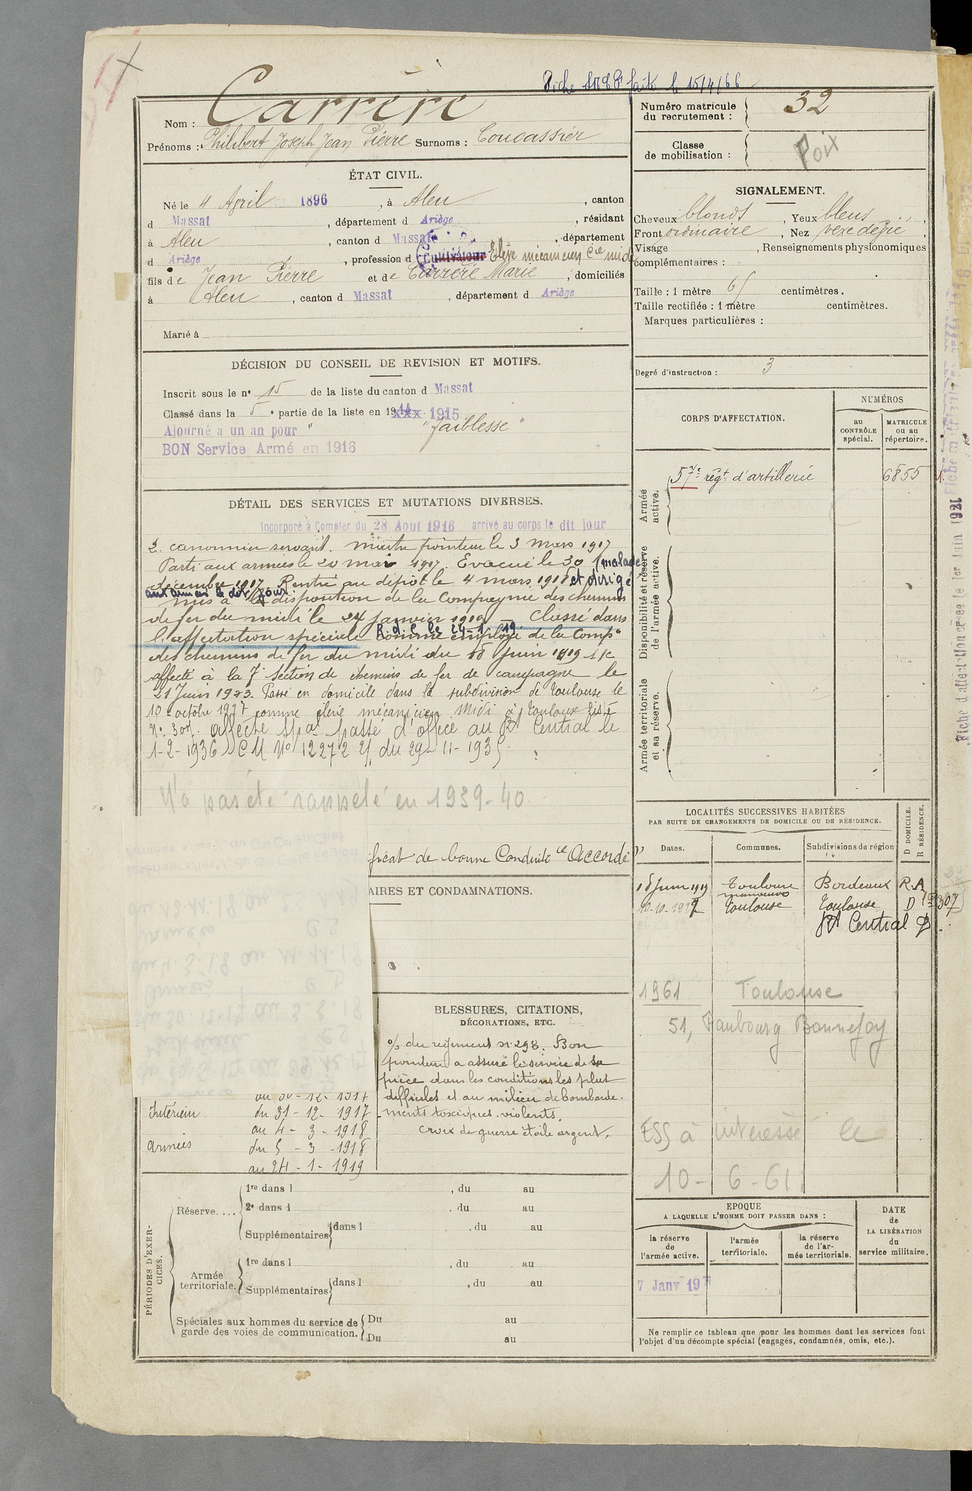 Fiche 1888 fait le 15/4/66
Nom : Carrère
Prénoms : Philibert Joseph Jean Pierre Surnoms : Coucassier
Numéro matricule du recrutement : 32
Classe de mobilisation : Poix
ÉTAT CIVIL.
Né le 4 Avril 1896, à Aleu, canton
d Massat, département d Ariège, résidant
à Aleu, canton d Massat, département
d Ariège, profession d Cultivateur Elève mécanicien Cie midi
fils de Jean Pierre et de Carrère Marie, domiciliés
à Aleu, canton d Massat, département d Ariège
Marié à
SIGNALEMENT.
Cheveux blonds, Yeux bleus,
Front ordinaire, Nez
Visage , Renseignements physionomiques
complémentaires :
Taille : 1 mètre 65 centimètres.
Taille rectifiée : 1 mètre centimètres.
Marques particulières :
Degré d'instruction : 3
DÉCISION DU CONSEIL DE REVISION ET MOTIFS.
Inscrit sous le n° 15 de la liste du canton d Massat
Classé dans la 5 e partie de la liste en 1915
Ajourné a un an pour "faiblesse"
BON Service Armé en 1916
DÉTAIL DES SERVICES ET MUTATIONS DIVERSES.
Incorporé à Compter du 28 Aout 1916 arrivé au corps le dit jour
2. canonnier servant. Maitre pointeur le 3 mars 1917
Parti aux armées le 20 mai 1917. Evacué le 30 (malade)
décembre 1917. Rentré au dépôt le 4 mars 1918 et dirigé
aux armées le dit jour.
mis à la disposition de la Compagnie des chemins
de fer du midi le 24 janvier 1919. Classé dans
R.d.C. le 24-1-19
l'affectation spéciale comme employé de la Comp.
des chemins de fer du midi du 18 Juin 1919 s/c
affecté à la 7e section de chemins de fer de campagne le
21 Juin 1923. Passé en domicile dans la subdivision de Toulouse le
10 octobre 1927 comme élève mécanicien Midi à Toulouse liste
N° 307. Affecté spal passé d'office au Rt Central le
1-2-1936 DCM N° 12272 2/ du 29-11-1935
N'a pas été rappelé en 1939-40
CORPS D'AFFECTATION.
NUMÉROS
au CONTRÔLE spécial.
MATRICULE ou au répertoire.
Armée active.
57e régt d'artillerie 6855
Disponibilité et réserve de l'armée active.
Armée territoriale et sa réserve.
Fiche d'affectation créée le 1er Juin 1921
LOCALITÉS SUCCESSIVES HABITÉES
PAR SUITE DE CHANGEMENTS DE DOMICILE OU DE RÉSIDENCE.
Dates. Communes. Subdivisions de région D DOMICILE. R RÉSIDENCE.
18 Juin 1919 Toulouse Bordeaux R.A
10-10-1927 Toulouse Toulouse D 307
Rt Central
1961 Toulouse
51, Faubourg Bonnefoy
ESS à intéressé le
10-6-61
ficat de bonne Conduite Accordé
AIRES ET CONDAMNATIONS.
BLESSURES, CITATIONS,
DÉCORATIONS, ETC.
% du régiment n° 298. Bon
pointeur a assuré le service de sa
pièce dans les conditions les plus
difficiles et au milieu de bombarde-
ments toxiques violents.
Croix de guerre étoile argent.
au 30-12-1917
Intérieur du 31-12-1917
au 4-3-1918
Armées du 5-3-1918
au 24-1-1919
PÉRIODES D'EXERCICES.
Réserve....
1re dans l , du au
2e dans l , du au
Supplémentaires dans l , du au
Armée territoriale.
1re dans l , du au
Supplémentaires dans l , du au
Spéciales aux hommes du service de garde des voies de communication.
Du au
Du au
EPOQUE
A LAQUELLE L'HOMME DOIT PASSER DANS :
la réserve de l'armée active.
l'armée territoriale.
la réserve de l'armée territoriale.
DATE de LA LIBÉRATION du service militaire.
7 Janv 19
Ne remplir ce tableau que pour les hommes dont les services font
l'objet d'un décompte spécial (engagés, condamnés, omis, etc.).